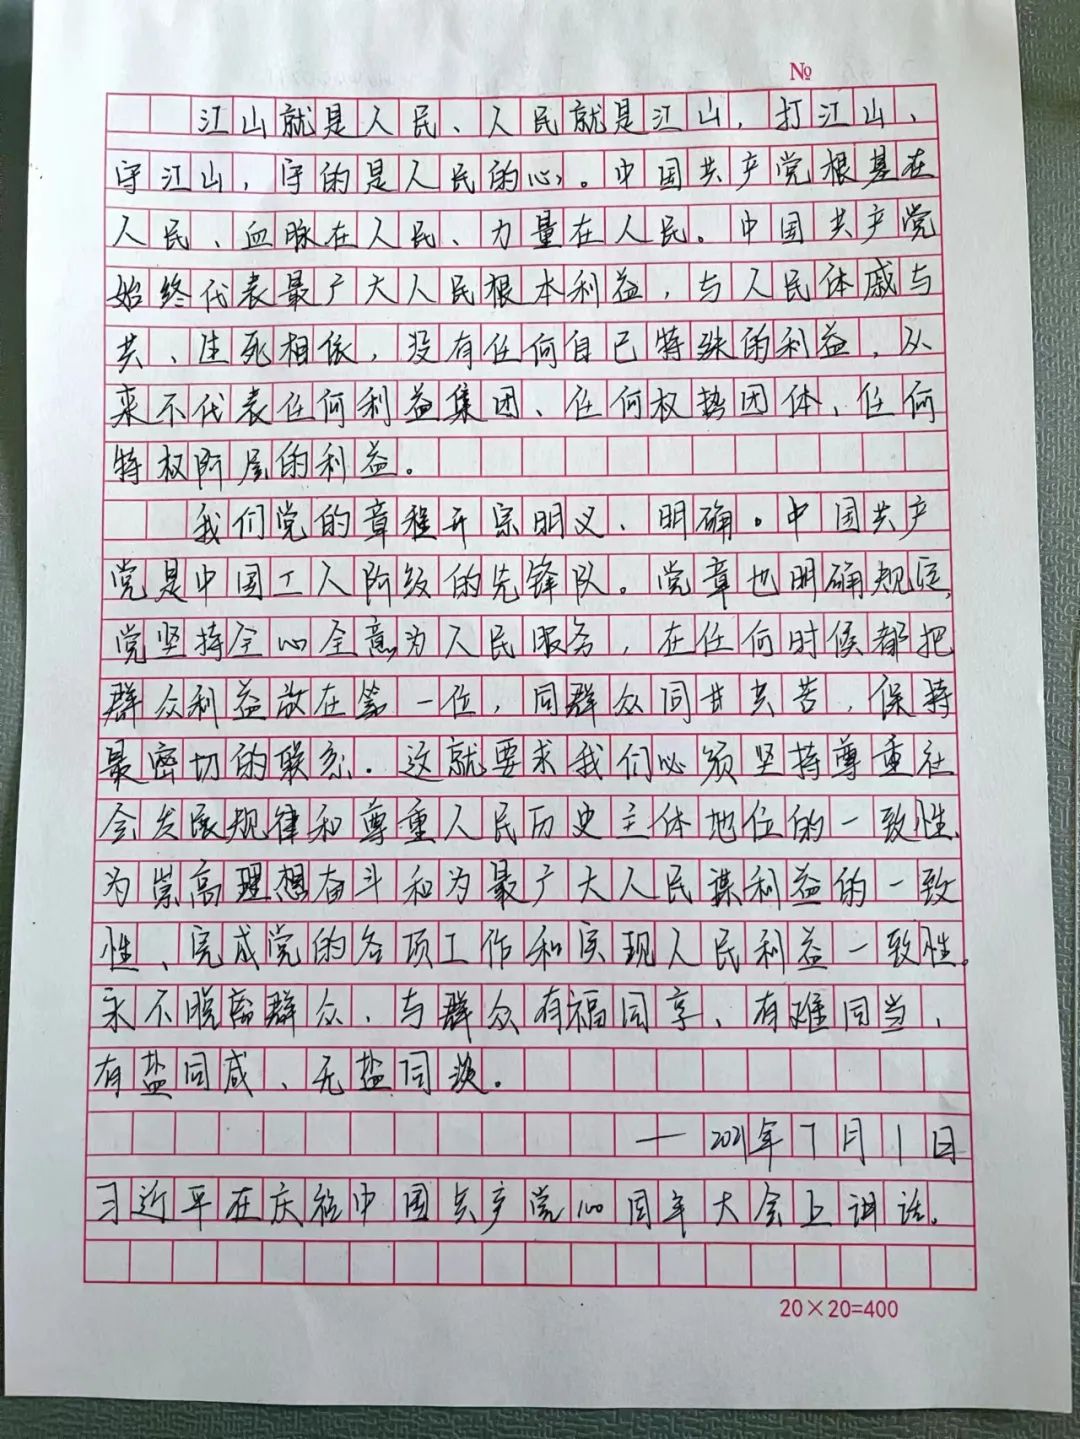 №
江山就是人民、人民就是江山,打江山、
守江山,守的是人民的心。中国共产党根基在
人民、血脉在人民、力量在人民。中国共产党
始终代表最广大人民根本利益,与人民休戚与
共、生死相依,没有任何自己特殊的利益,从
来不代表任何利益集团、任何权势团体、任何
特权阶层的利益。
我们党的章程开宗明义、明确。中国共产
党是中国工人阶级的先锋队。党章也明确规定,
党坚持全心全意为人民服务,在任何时候都把
群众利益放在第一位,同群众同甘共苦,保持
最密切的联系.这就要求我们必须坚持尊重社
会发展规律和尊重人民历史主体地位的一致性、
为崇高理想奋斗和为最广大人民谋利益的一致
性、完成党的各项工作和实现人民利益一致性。
永不脱离群众、与群众有福同享、有难同当、
有盐同咸、无盐同淡。
— 2021年7月1日
习近平在庆祝中国共产党100周年大会上讲话.
20×20=400